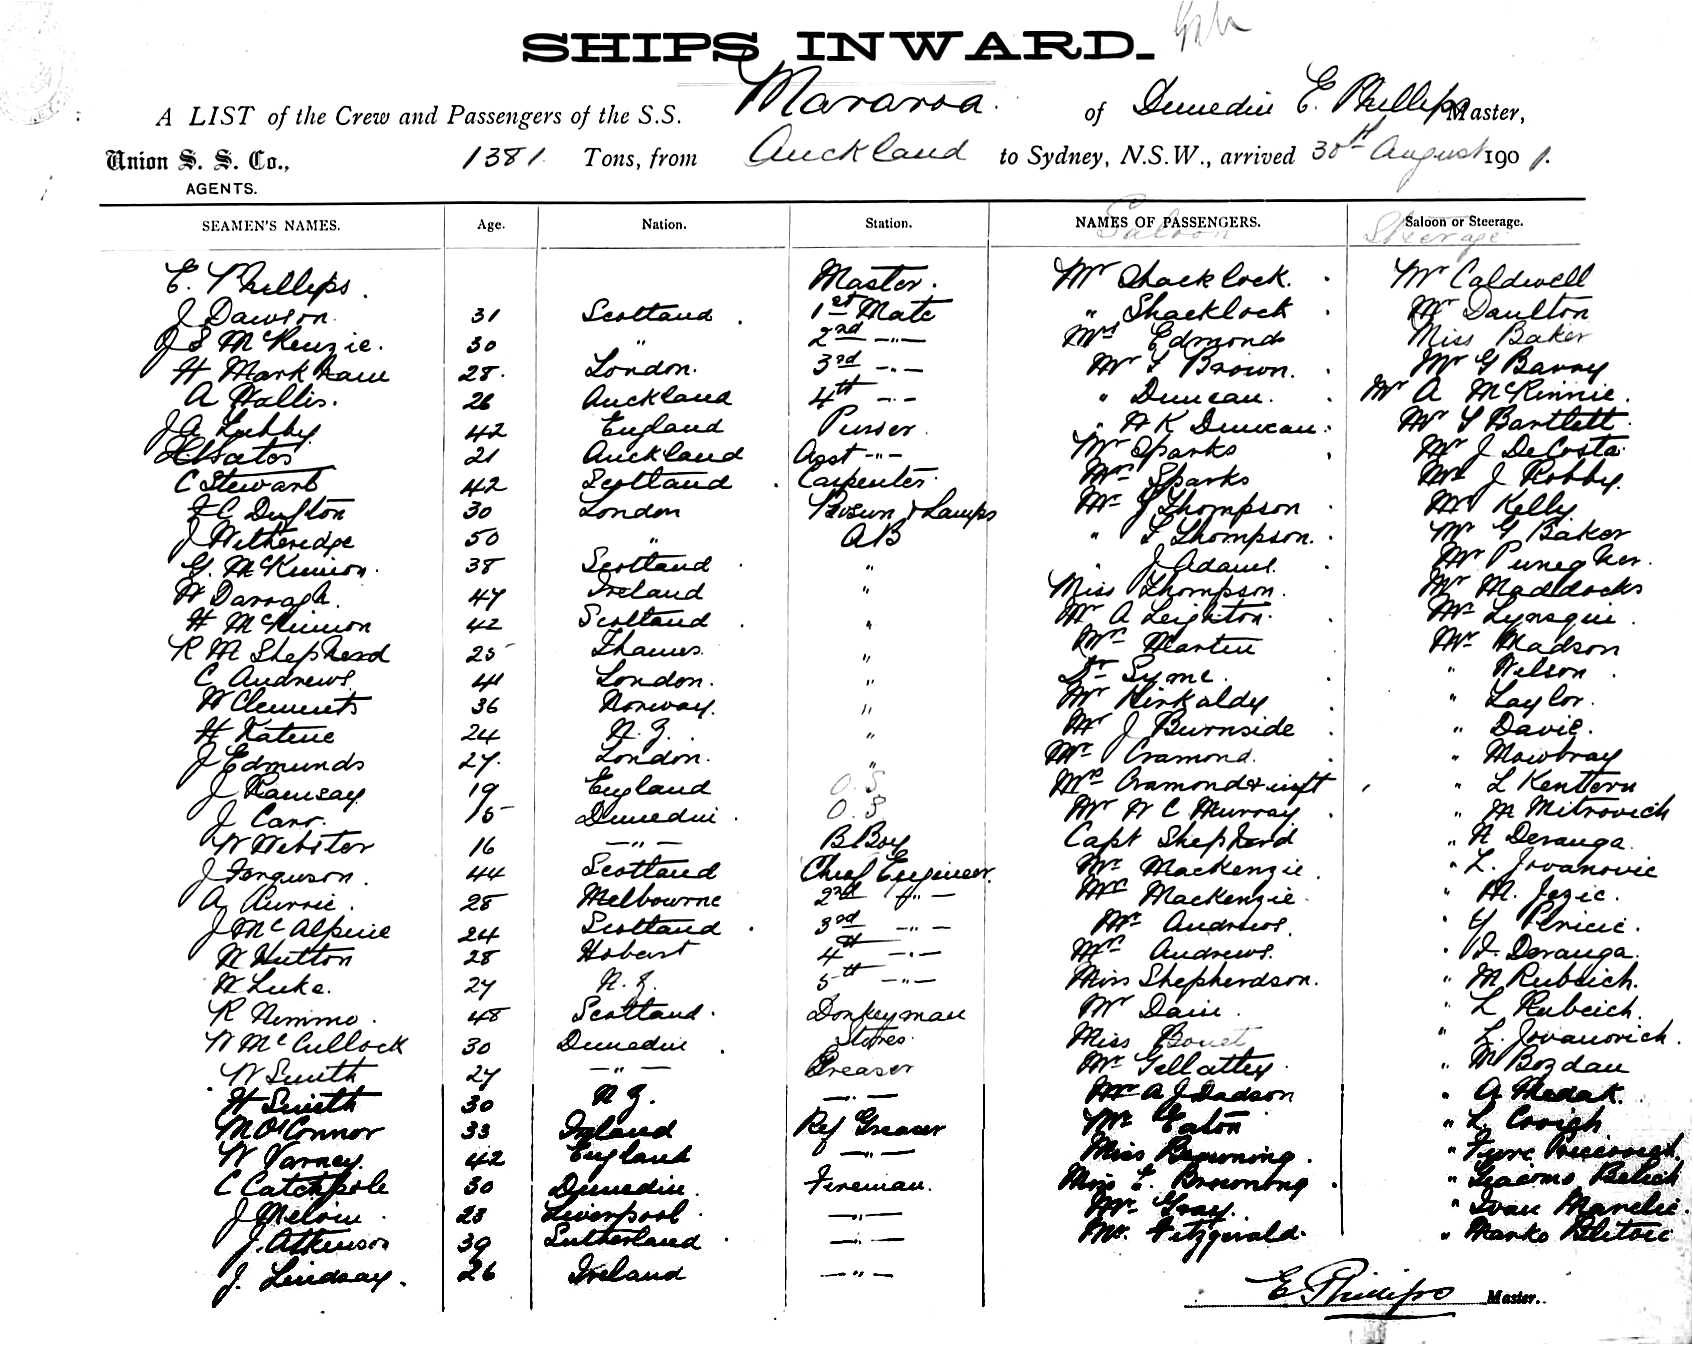 SHIPS INWARD.
A LIST of the Crew and Passengers of the S.S. Mararoa. of Dunedin E. Phillips Master,
Union S. S. Co., 1381 Tons, from Auckland to Sydney, N.S.W., arrived 30th August 1901.
AGENTS.
SEAMEN'S NAMES. Age. Nation. Station. NAMES OF PASSENGERS. Saloon or Steerage.
Saloon Steerage
E. Phillips. Master. Mr Shacklock. Mr Caldwell
J Dawson. 31 Scotland. 1st Mate " Shacklock Mr Daulton
J S McKenzie. 30 " 2nd -"- Mrs Edmonds Miss Baker
H Markham 28. London. 3rd -"- Mr Brown. Mr G Barry
A Wallis. 26 Auckland 4th -"- " Duncan. Mr A McKinnie.
J A Lubby 42 England Purser. " K Duncan. Mr Bartlett.
21 Auckland Asst -"- Mr Sparks Mr J DeCosta.
C Stewart 42 Scotland. Carpenter. Mrs Sparks Mrs J Robby.
F C Dufton 30 London Bosun & Lamps Mr J Thompson Mr Kelly
J Witheridge 50 " AB " Thompson. Mr G Baker
G. McKinnon. 38 Scotland " J Adams. Mr
W Darragh. 47 Ireland " Miss Thompson. Mr Maddocks
H McKinnon 42 Scotland. " Mr A Leighton. Mr
R M Shepherd 25 Thames. " Mrs Martin Mr Madson
C Andrews. 41 London. " Dr Syme. " Wilson
W Clements 36 Norway. " Mr Kirkaldy " Taylor.
H Katene 24 N. Z. " Mr J Burnside " Davie.
J Edmunds 27. London. " Mr Cramond. " Mowbray
J Ramsay 19 England O.S Mrs Cramond & inft " L Kentera
J Carr. 15 Dunedin. O.S Mr W C Murray " M Mitrovich
W Webster 16 -"- B Boy Capt Shepherd " N Deranga.
J Ferguson. 44 Scotland Chief Engineer. Mr Mackenzie. " L. Jovanovic
A Currie. 28 Melbourne 2nd "- Mrs Mackenzie. " M. Jezic.
J McAlpine 24 Scotland. 3rd -"- Mr Andrews. " Y Pericic.
W Hutton 28 Hobart 4th -"- Mrs Andrews. " Deranga.
W Luke. 27 N. Z. 5th -"- Miss Shepherdson. " M Rubcich.
R Nimmo. 48 Scotland. Donkeyman Mr Dain. " L Rubcich.
W McCullock 30 Dunedin. Stores. Miss Bouet " L. Jovanovich.
W Smith 27 -"- Greaser Mr Gellatley. " M Bozdan
H Smith 30 N Z. -"- Mr A J Dadson " A Medak.
M O'Connor 33 Ireland Ref Greaser Mr Eaton " L.
W Varney. 42 England -"- Miss Browning. "
C Catchpole 30 Dunedin. Fireman. Miss E. Browning " Giacomo Belich
J Melvin. 23 Liverpool. -"- Mr Gray. " Ivan Marelic.
J. Atkinson 39 Sutherland. -"- Mr. Fitzgerald. " Marko Blitvic
J. Lindsay. 26 Ireland -"-
E Phillips Master.